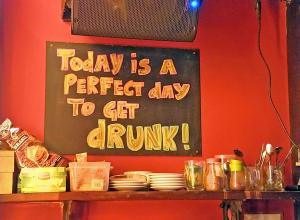 TODAY IS A
PERFECT DAY
TO GET
dRUNK!